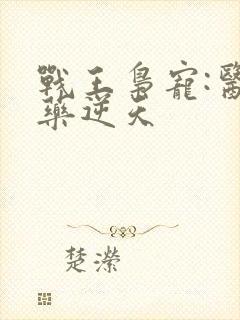 戰王梟寵:醫
藥逆天
楚濴